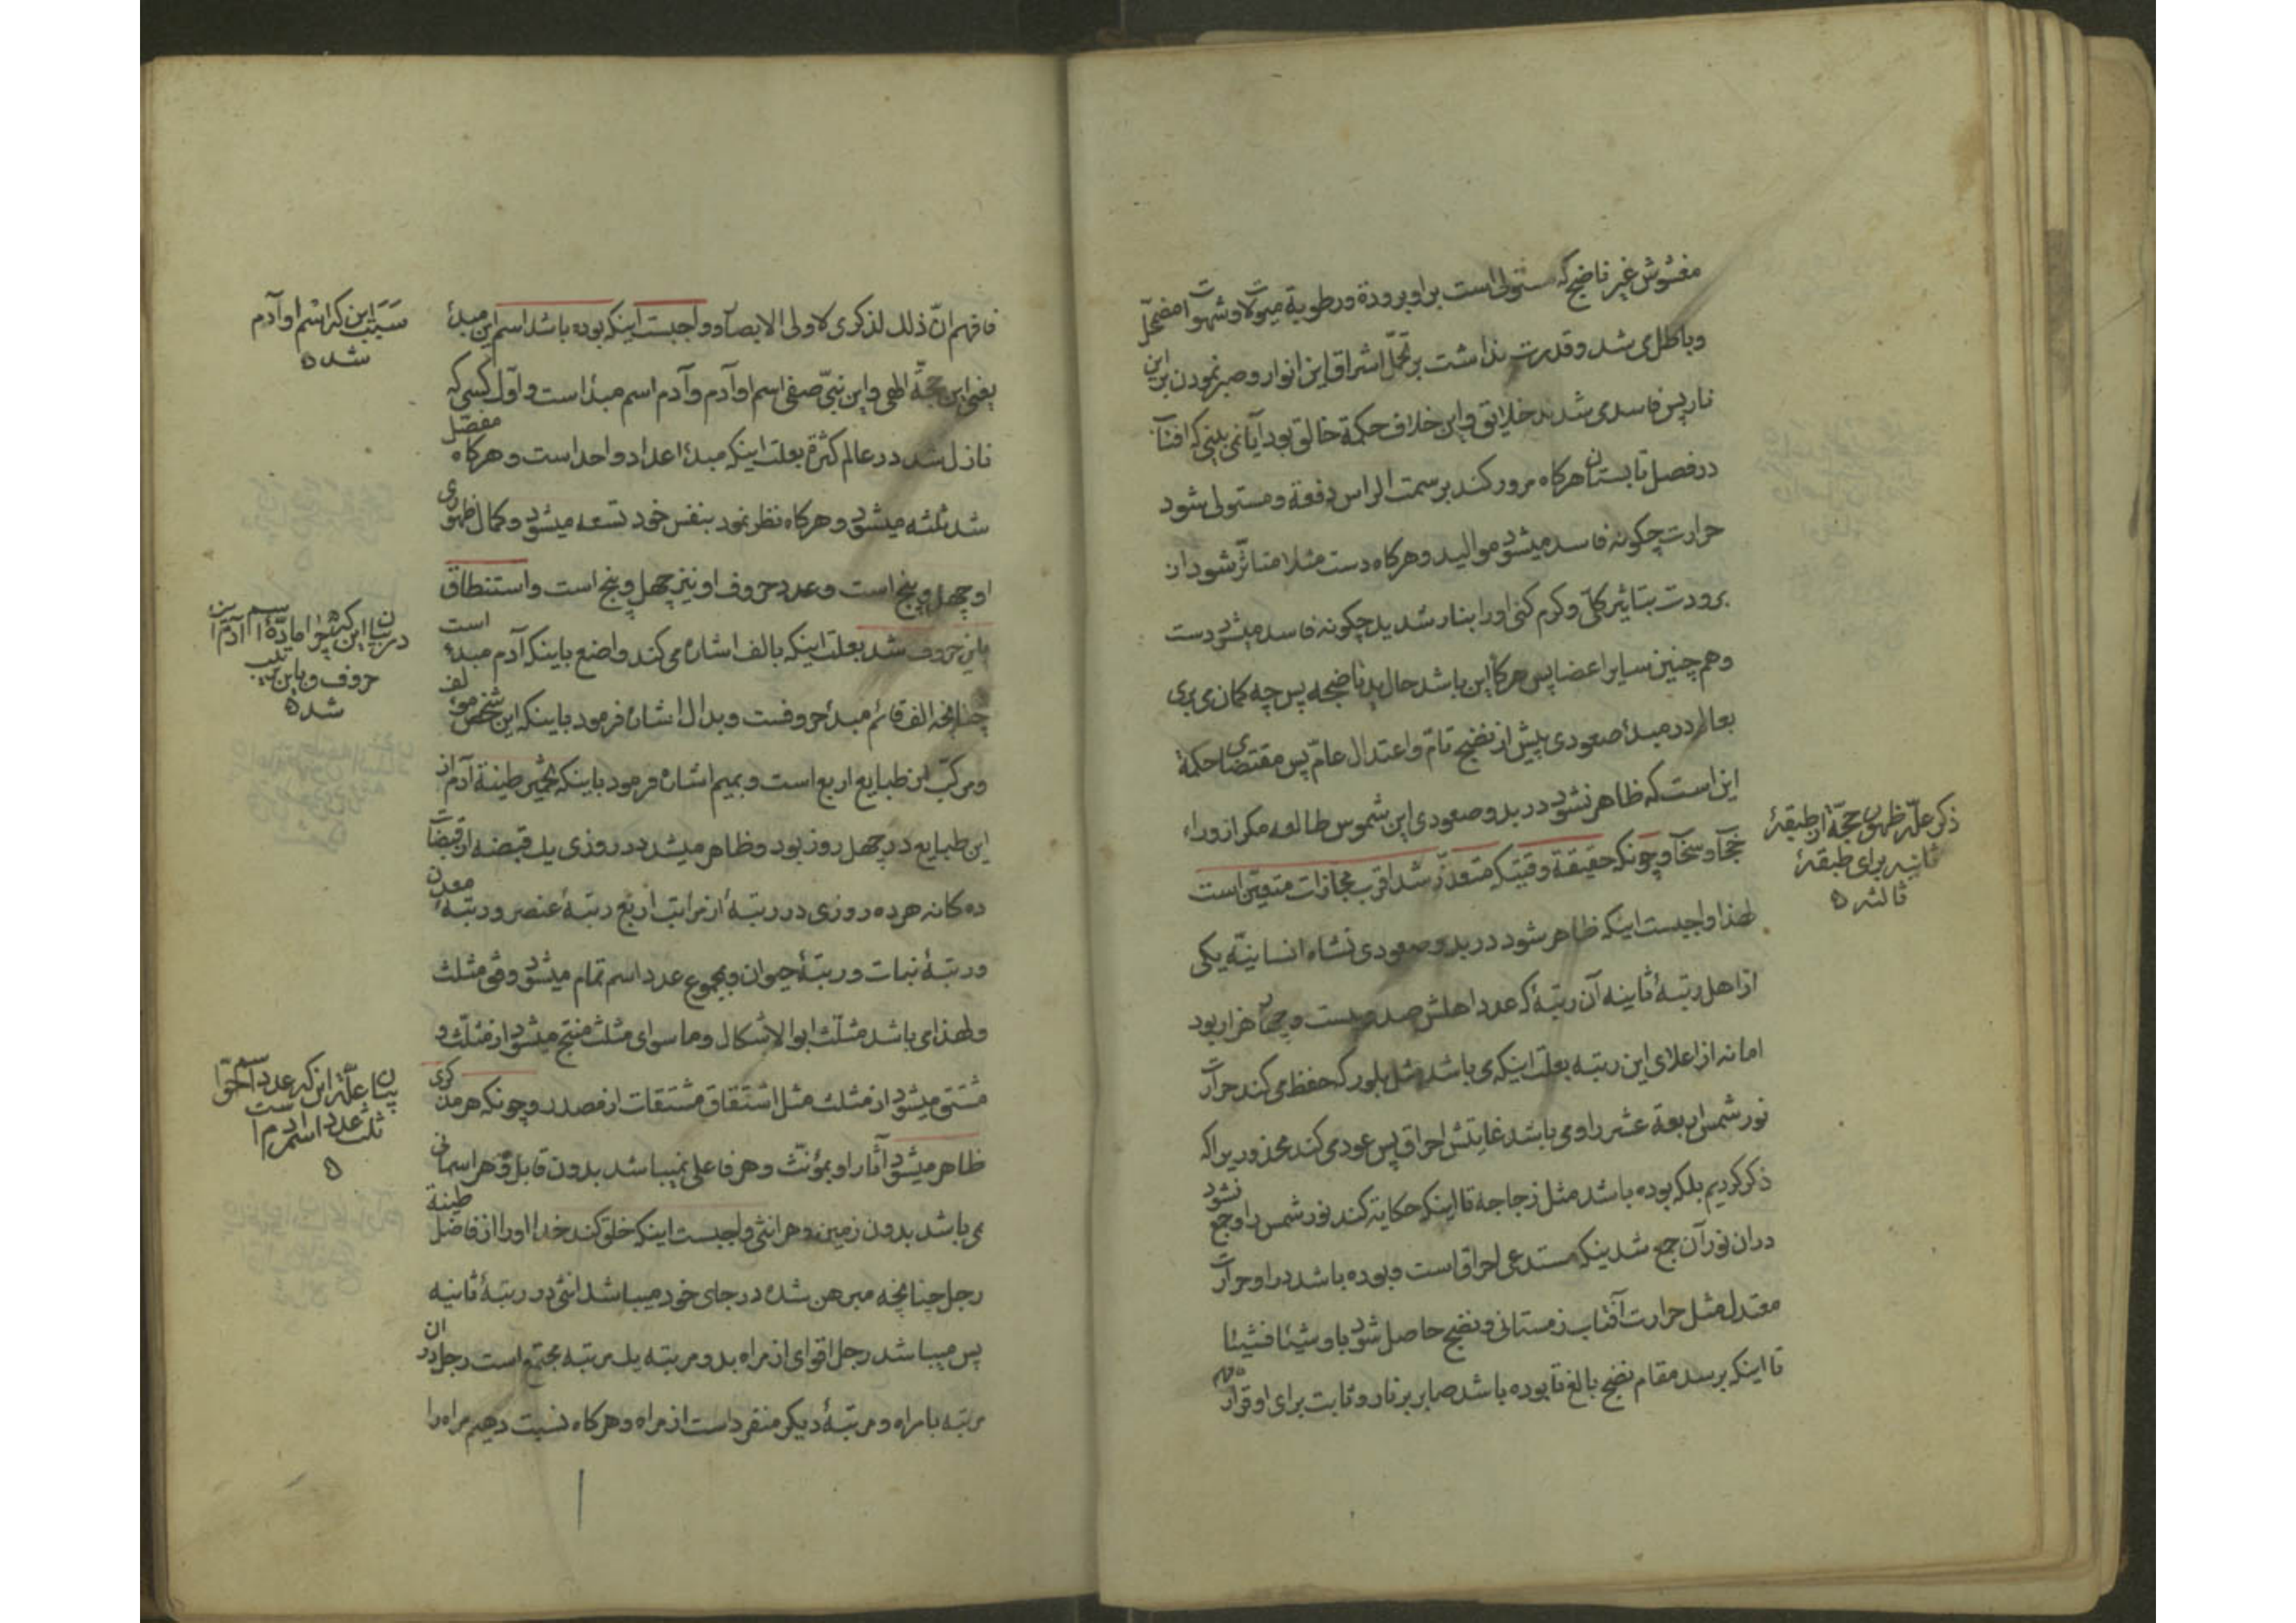 مغشوش غیر ناضج که مستولی است بر او برودة و رطوبة میولات و شهوات مضمحل
و باطل می شد و قدرت نداشت بر تحمّل اشراق این انوار و صبر نمودن بر این
نار پس فاسد می شدند خلایق و این خلاف حکمة خالق بود آیا نمی بینی که افتاب
در فصل تابستان هرکاه مرور کند بر سمت الراس دفعة و مستولی شود
حرارت چکونه فاسد میشود موالید و هرکاه دست مثلا متاثّر شود از
برودت بتاثیر کلّی و کرم کنی او را بنار شدید چکونه فاسد میشود دست
و هم چنین سایر اعضا پس هرکاه این باشد حال بدن ناضجه پس چه کمان می بری
بعالم در مبدأ صعودی پیش از نضج تامّ و اعتدال عامّ پس مقتضای حکمة
این است که ظاهر نشود در بدو صعودی این شموس طالعه مکر از وراء
حجاب و سحاب و چونکه حقیقة وقتیکه متعذّر شد اقرب مجازات متعیّن است
لهذا واجبست اینکه ظاهر شود در بدو صعودی نشاه انسانیّه یکی
از اهل رتبهٔ ثانیه آن رتبهٔ که عدد اهلش صد و بیست و چهار هزار بود
اما نه از اعلای این رتبه بعلت اینکه می باشد مثل بلور که حفظ می کند حرارت
نور شمس اربعة عشر را و می باشد غایتش احراق پس عود می کند محذوریرا که
ذکر کردیم بلکه بوده باشد مثل زجاجه تا اینکه حکایة کند نور شمس را و جمع نشود
در ان نور آن جمع شدینکه مستدعی احراق است و بوده باشد در او حرارت
معتدله مثل حرارت آفتاب زمستانی و نضج حاصل شود باو شیئا فشیئا
تا اینکه برسد مقام نضج بالغ تا بوده باشد صابر بر نار و ثابت برای او قرار
ذکر علّة ظهور حجّة از طبقهٔ
ثانیه برای طبقهٔ
ثالثه ٥
فافهم انّ ذلك لذکری لاولی الابصار و واجبست اینکه بوده باشد اسم این مبدأ
یعنی این حجّة الهی و این نبیّ صفی اسم او آدم و آدم اسم مبدأ است و اوّل کسی که
نازل شد در عالم کثرة بعلت اینکه مبدأ اعداد واحد است و هرکاه مفصّل
شد ثلثه میشود و هرکاه نظر نمود بنفس خود تسعه میشود و کمال ظهوری
او چهل و پنج است و عدد حروف او نیز چهل و پنج است و استنطاق
باین حروف شد بعلت اینکه بالف اشاره می کند واضع باینکه آدم مبدأ است
چنانچه الف قائم مبدأ حروفست و بدال اشاره فرمود باینکه این شخص مؤلف
و مرکب از طبایع اربع است و بمیم اشاره فرمود باینکه تخمیر طینة آدم از
این طبایع در چهل روز بود و ظاهر میشد در روزی یك قبضه از قبضات
ده کانه هر ده روزی در رتبهٔ از مراتب اربع رتبهٔ عنصر و رتبهٔ معدن
و رتبهٔ نبات و رتبهٔ حیوان و بمجموع عدد اسم تمام میشود وفق مثلث
و لهذا می باشد مثلّث ابو الاشکال و ما سوای مثلث منتج میشود از مثلّث و
مشتق میشود از مثلث مثل اشتقاق مشتقات از مصدر و چونکه هر مذکری
ظاهر میشود آثار او بمؤنّث و هر فاعلی نمیباشد بدون قابل و هر اسمانی
می باشد بدون زمین و هر انثی واجبست اینکه خلق کند خدا او را از فاضل طینة
رجل چنانچه مبرهن شده در جای خود میباشد انثی در رتبهٔ ثانیه
پس میباشد رجل اقوای از مراه بدو مرتبه یك مرتبه مجتمع است رجل در ان
مرتبه با مراه و مرتبهٔ دیکر منفرد است از مراه و هرکاه نسبت دهیم مراه را
سبب این که اسم او آدم
شده ٥
در بیان این که چرا مادّهٔ اسم آدم از این
حروف و باین ترتیب
شده ٥
بیان علّة این که عدد اسم حوّا
ثلث عدد اسم ادم است
٥